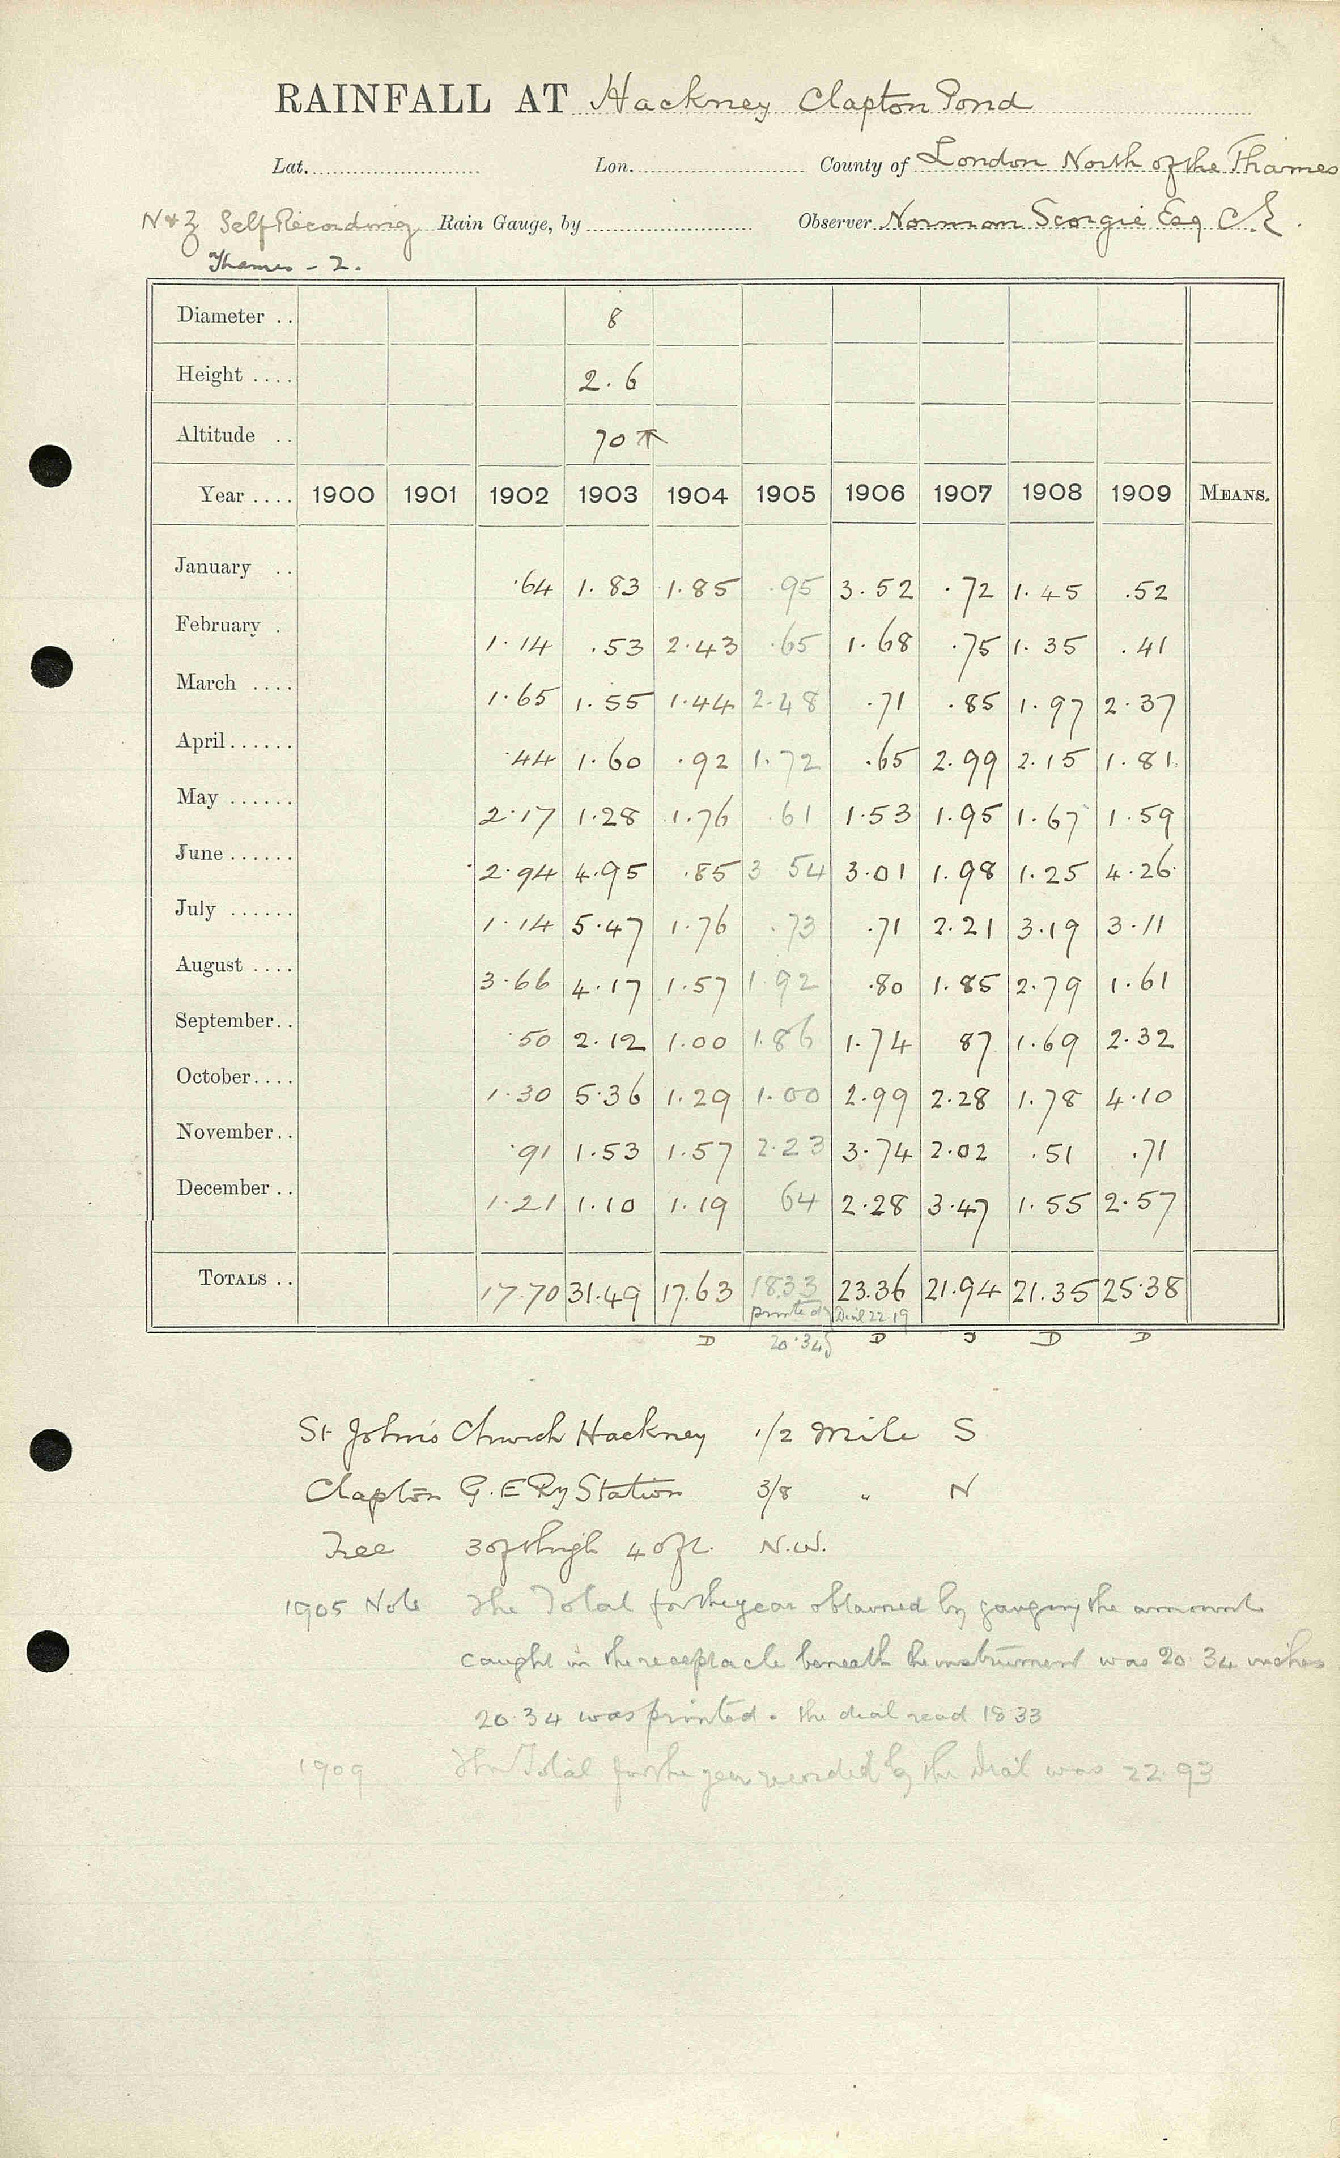 RAINFALL AT Hackney Clapton Pond
Lat. Lon. County of London North of the Thames
N & Z Self Recording Rain Gauge, by Observer Norman Scorgie Esq C.E.
Thames - 2.
Diameter .. 8
Height .... 2.6
Altitude .. 70
Year .... 1900 1901 1902 1903 1904 1905 1906 1907 1908 1909 MEANS.
January .. .64 1.83 1.85 .95 3.52 .72 1.45 .52
February . 1.14 .53 2.43 .65 1.68 .75 1.35 .41
March .... 1.65 1.55 1.44 2.48 .71 .85 1.97 2.37
April...... .44 1.60 .92 1.72 .65 2.99 2.15 1.81
May ...... 2.17 1.28 1.76 .61 1.53 1.95 1.67 1.59
June...... 2.94 4.95 .85 3 54 3.01 1.98 1.25 4.26
July ...... 1.14 5.47 1.76 .73 .71 2.21 3.19 3.11
August .... 3.66 4.17 1.57 1.92 .80 1.85 2.79 1.61
September.. .50 2.12 1.00 1.86 1.74 87 1.69 2.32
October.... 1.30 5.36 1.29 1.00 2.99 2.28 1.78 4.10
November.. .91 1.53 1.57 2.23 3.74 2.02 .51 .71
December .. 1.21 1.10 1.19 64 2.28 3.47 1.55 2.57
TOTALS .. 17.70 31.49 17.63 18.33 23.36 21.94 21.35 25.38
printed Dial 22.19
D 20.34 D D D
St John's Church Hackney 1/2 mile S
Clapton G.E Ry Station 3/8 " N
Tree 30ft high 40ft. N.W.
1905 Note The Total for the year obtained by gauging the amount
caught in the receptacle beneath the instrument was 20.34 inches
20.34 was printed. the dial read 18 33
1909 The Total for the year recorded by the Dial was 22.93